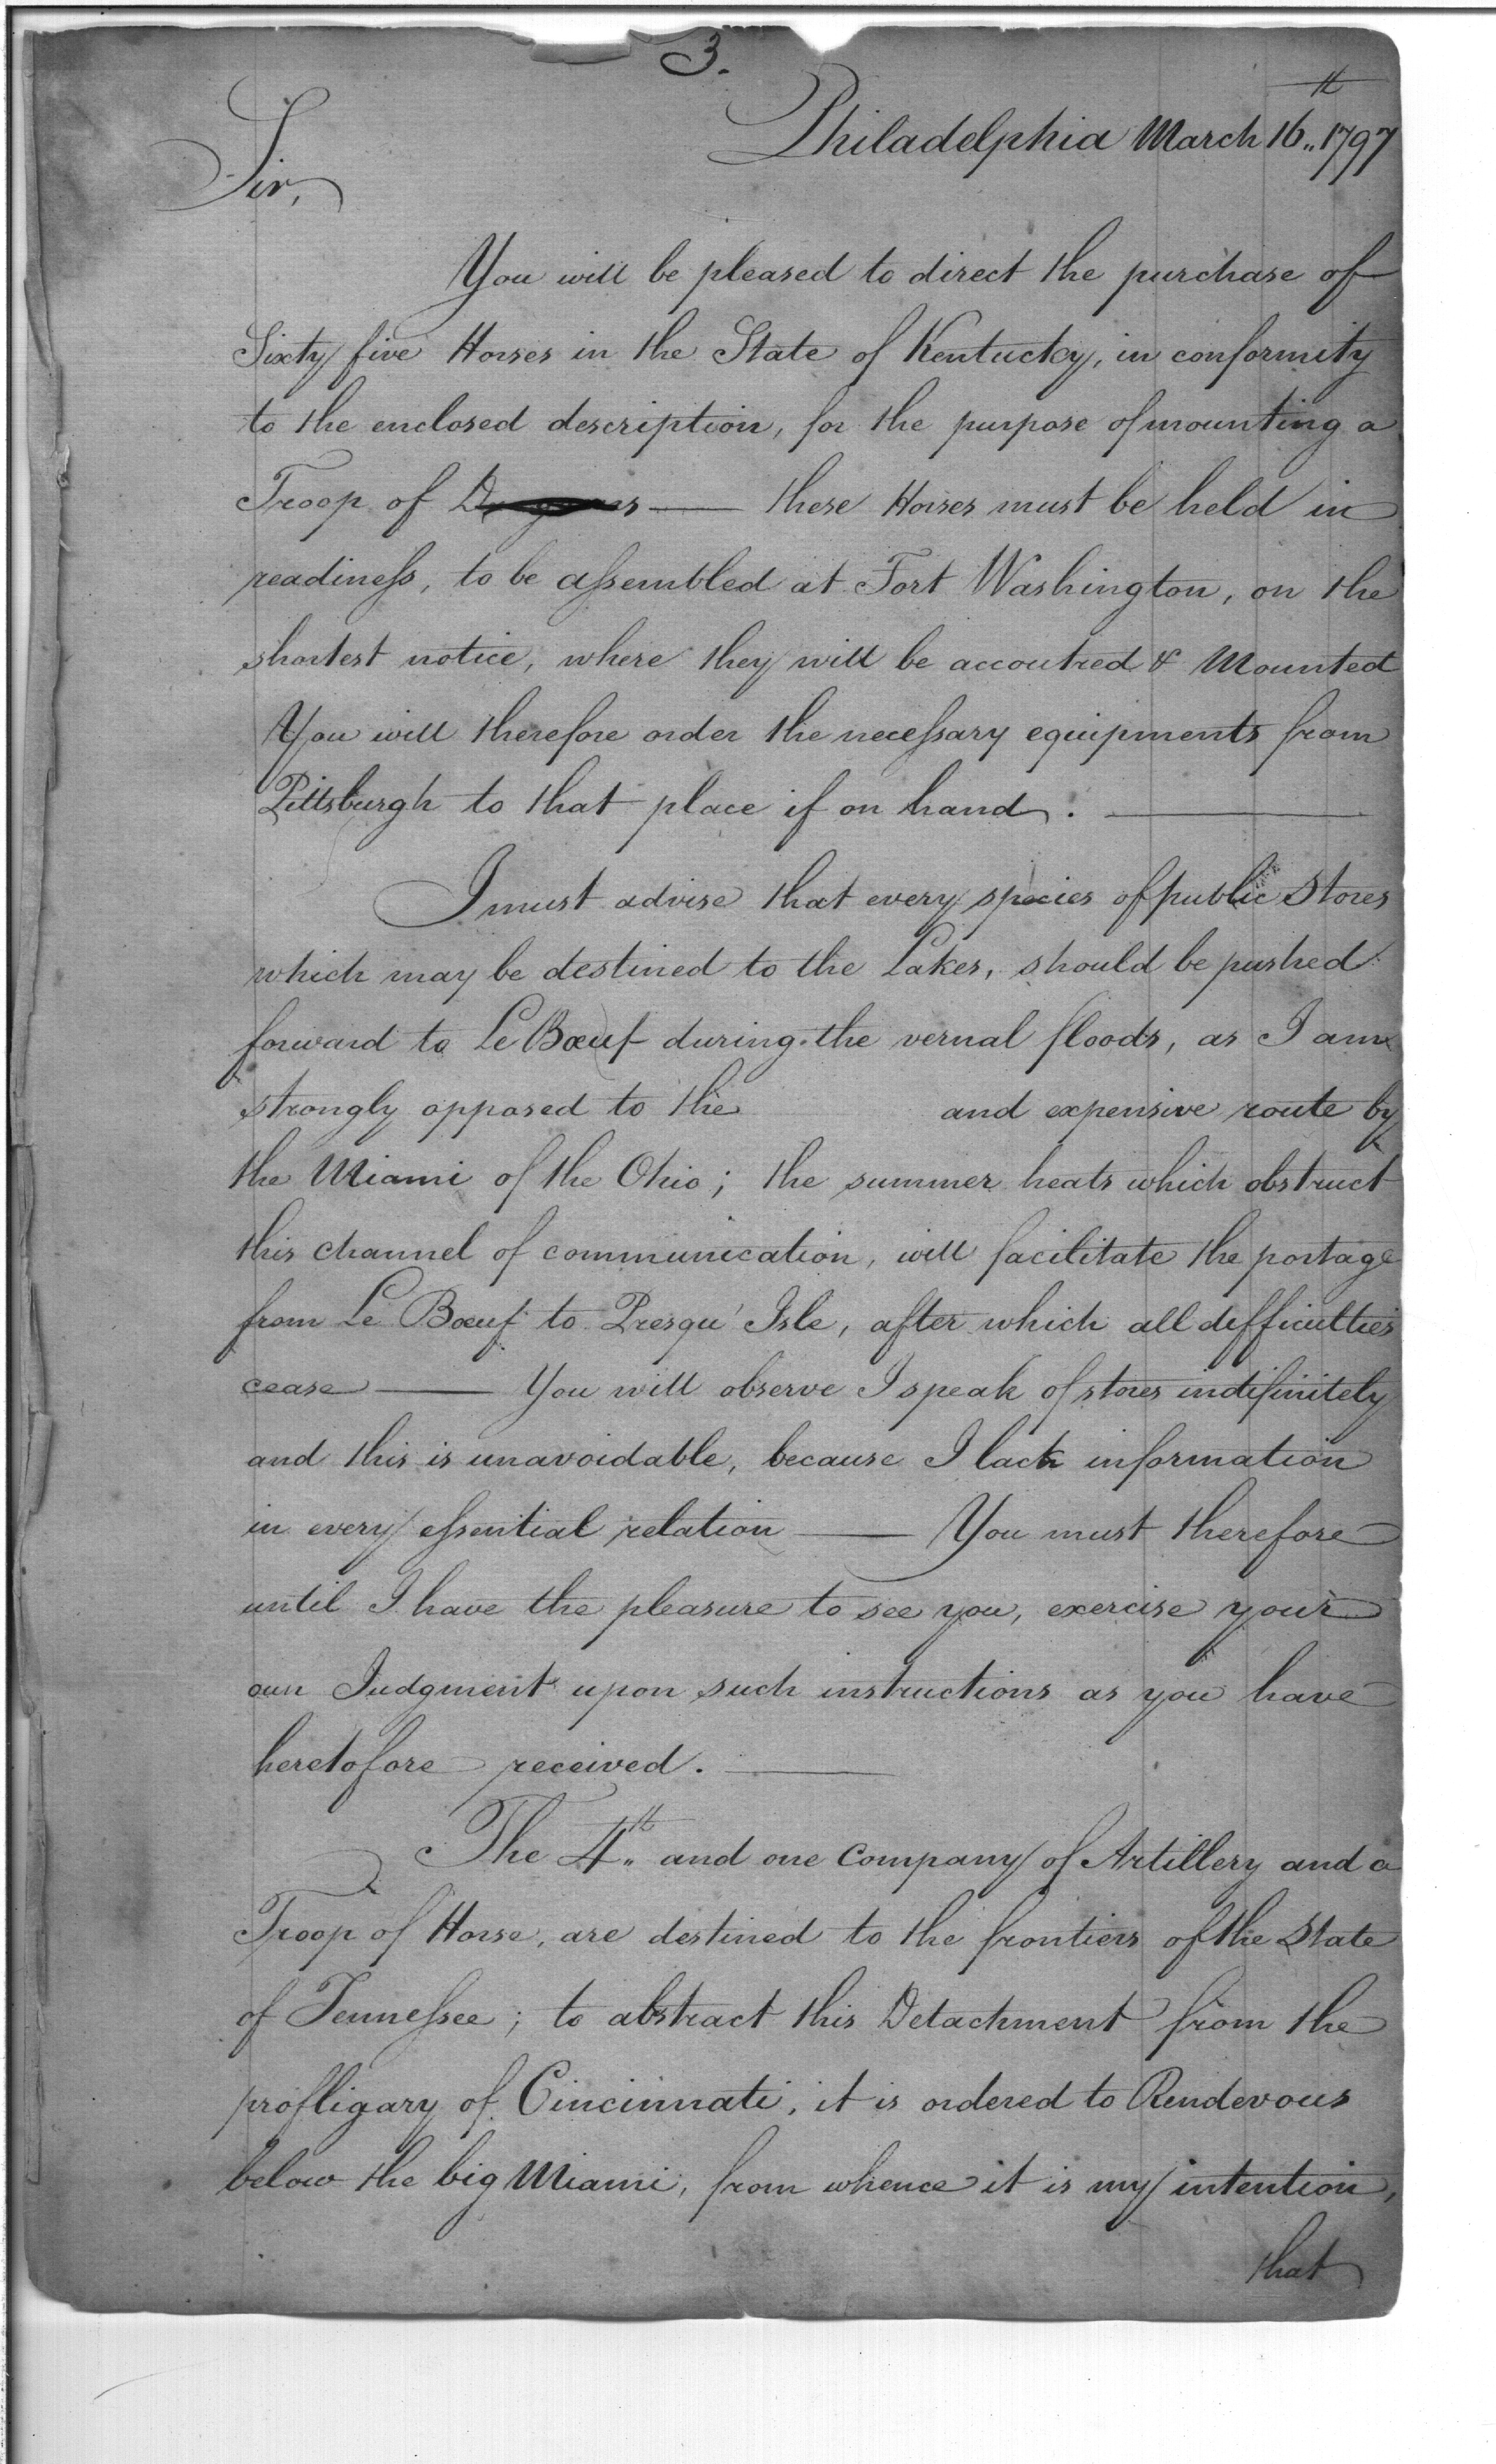 3.
Philadelphia March 16th 1797
Sir,
You will be pleased to direct the purchase of
Sixty five Horses in the State of Kentucky, in conformity
to the enclosed description, for the purpose of mounting a
Troop of — these Horses must be held in
readiness, to be assembled at Fort Washington, on the
shortest notice, where they will be accoutred & Mounted
You will therefore order the necessary equipments from
Pittsburgh to that place if on hand. —
I must advise that every species of public Stores
which may be destined to the Lakes, should be pushed
forward to Le Bœuf during the vernal floods, as I am
strongly opposed to the and expensive route by
the Miami of the Ohio; the summer heats which obstruct
this channel of communication, will facilitate the portage
from Le Bœuf to Presqu' Isle, after which all difficulties
cease — You will observe I speak of stores indifinitely
and this is unavoidable, because I lack information
in every essential relation — You must therefore
until I have the pleasure to see you, exercise your
own Judgment upon such instructions as you have
heretofore received. —
The 4th and one Company of Artillery and a
Troop of Horse, are destined to the frontiers of the State
of Tennessee; to abstract this Detachment from the
profligary of Cincinnati, it is ordered to Rendevous
below the big Miami, from whence it is my intention,
that